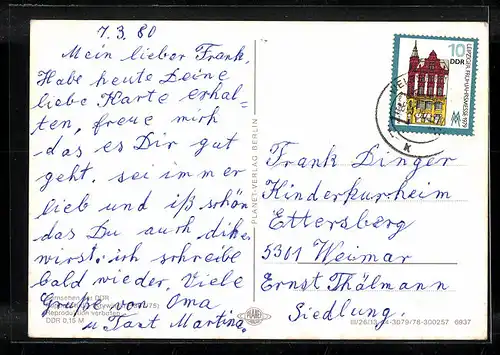 7.3.80
Mein lieber Frank,
Habe heute Deine
liebe Karte erhal-
ten, freue mich
das es Dir gut
geht. sei immer
lieb und iß schön
das Du auch dike
wirst. ich schreibe
bald wieder. Viele
Grüße von Oma
u Tant Martina.
Fernsehen der DDR
Reproduktion verboten
DDR 0,15 M
PLANET-VERLAG BERLIN
PLANET
10
DDR
LEIPZIGER FRÜHJAHRSMESSE 1979
MM
K
Frank Dinger
Kinderkurheim
Ettersberg
5301 Weimar
Ernst Thälmann
Siedlung.
III/26/13 A4-3079/78-300257 6837